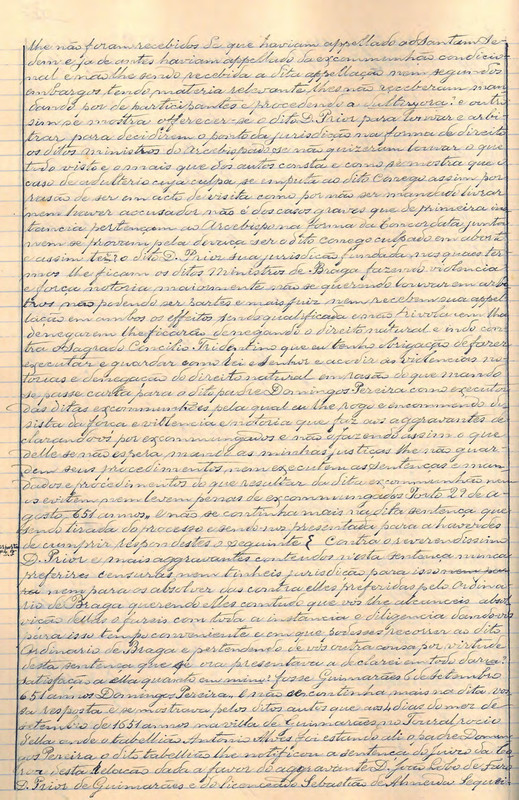 lhe não foram recebidos de que haviam appellado ad Santam Se-
dem e ja de antes haviam appellado da excommunhão condicio-
nal e não lhe sendo recebida a dita appellação nem segundos
embargos tendo materia relevante lhes não receberam man-
dando por de participantes e procedendo a ulteriora: e outro
sim se mostra offerecer-se o dito D. Prior para louvar e arbi-
trar para decidirem o ponto da jurisdição na forma de direito
os ditos ministros do Arcebispado se não quizeram louvar o que
tudo visto e o mais que dos autos consta e como se mostra que o
caso de adulterio cuja culpa se imputa ao dito Conego assim por
rasão de ser em acto de visita como por não ser mandado livrar
nem haver accusador não é dos casos graves que de primeira ins-
tancia pertençam ao Arcebispo na forma da Concordata junta
nem se provam pela devaça ser o dito conego culpado em
e assim ter o dito D. Prior sua jurisdição fundada nos quaes ter-
mos lhe ficam os ditos Ministros de Braga fazendo violencia
e força notoria maiormente não se querendo louvar em arbi-
tros não podendo ser partes e mais juiz nem recebem sua appel-
lação em ambos os effeitos sendo qualificada e não frivola em lha
denegarem lhe ficarão denegando o direito natural e indo con-
tra o Sagrado Concilio Tridentino que eu tenho obrigação de fazer
executar e guardar como Rei e Senhor e acodir ás violencias no-
torias e denegação do direito natural em rasão do que mando
se passe carta para o dito padre Domingos Pereira como executor
das ditas excommunhões pela qual eu lhe rogo e encommendo de-
sista da força e violencia e notoria que faz aos aggravantes de-
clarando-os por excommungados e não o fazendo assim o que
delle se não espera mando ás minhas justiças lhe não guar-
dem seus procedimentos nem executem as sentenças e man-
dados e procedimentos do que resultar da dita excommunhão nem
os evitem nem levem penas de excommungados Porto 22 de a-
gosto 651 annos. E não se continha mais na dita sentença que
sendo tirada do processo e sendo-vos presentada para a haverdes
de cumprir respondestes o seguinte { Contra o reverendissimo
D. Prior e mais aggravantes contendos n'esta sentença nunca
preferires censuras nem tinheis jurisdição para isso
nem para os absolver das contra elles preferidas pelo Ordina-
rio de Braga querendo elles comtudo que vos lhe alcanceis absol-
vição delles o fareis com toda a instancia e diligencia dando-vos
para isso tempo conveniente e em que podesseis recorrer ao dito
Ordinario de Braga e pertendendo de vós outra cousa por virtude
desta sentença que se vos presentava a declarem todo dareis
satisfação a ella quanto em mim fosse Guimarães 6 de setembro
651 annos Domingos Pereira. E não se continha mais na dita vos-
sa resposta e se mostrava pelos ditos autos que aos 4 dias do mez de
setembro de 1651 annos na villa de Guimarães no Toural rocio
della onde o tabellião Antonio Alves foi estando ali o padre Domin-
gos Pereira o dito tabellião lhe notificou a sentença do Juizo da Co-
rôa desta Relação dada a favor do aggravante D. João Lobo de Faro
D. Prior de Guimarães e do licenceado Sebastião de Almeida Sequeir